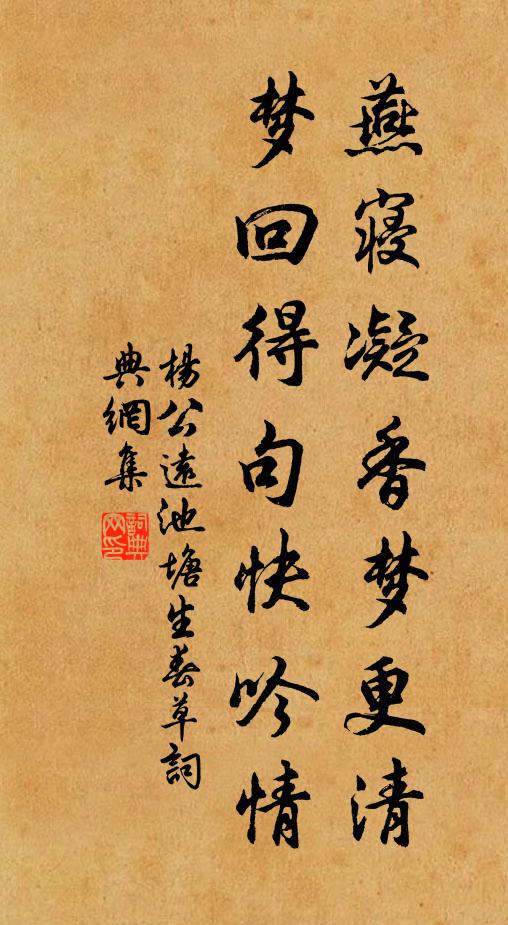 燕寝凝香梦更清
梦回得句快吟情
楊公遠池塘生春草詞
典網集
詞典網印